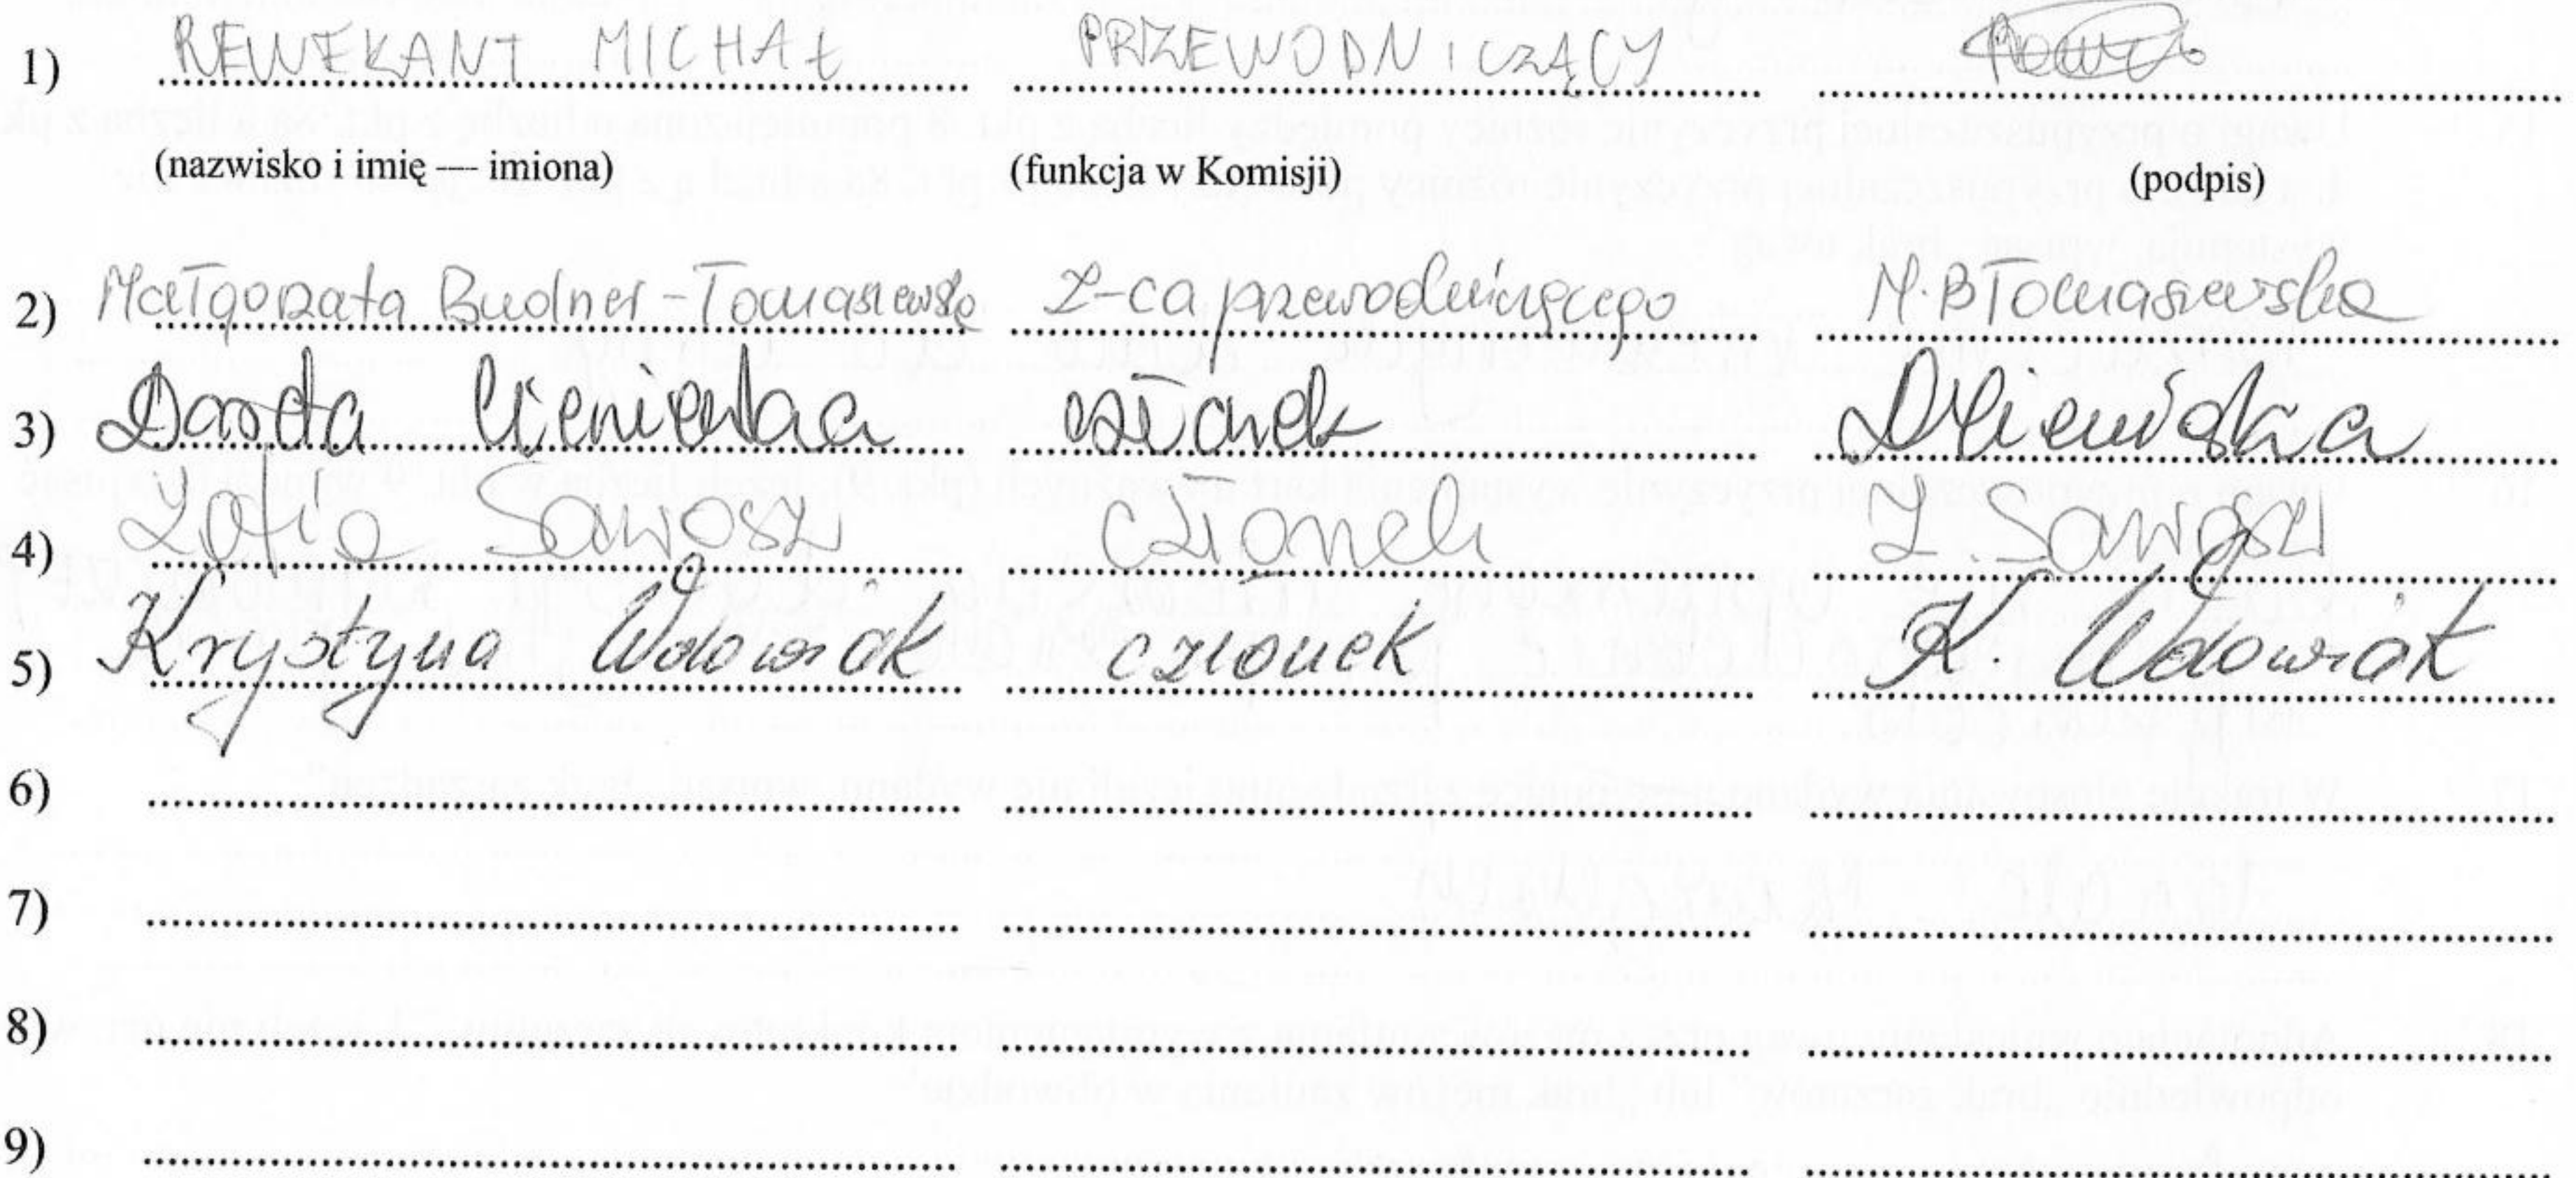 1) REWEKANT MICHAŁ PRZEWODNICZĄCY
(nazwisko i imię — imiona) (funkcja w Komisji) (podpis)
2) Małgorzata Budner-Tomaszewska Z-ca przewodniczącego M.BTomaszewska
3) członek
4) Zofia Sawosz członek Z. Sawosz
5) Krystyna Wdowiak członek K. Wdowiak
6)
7)
8)
9)